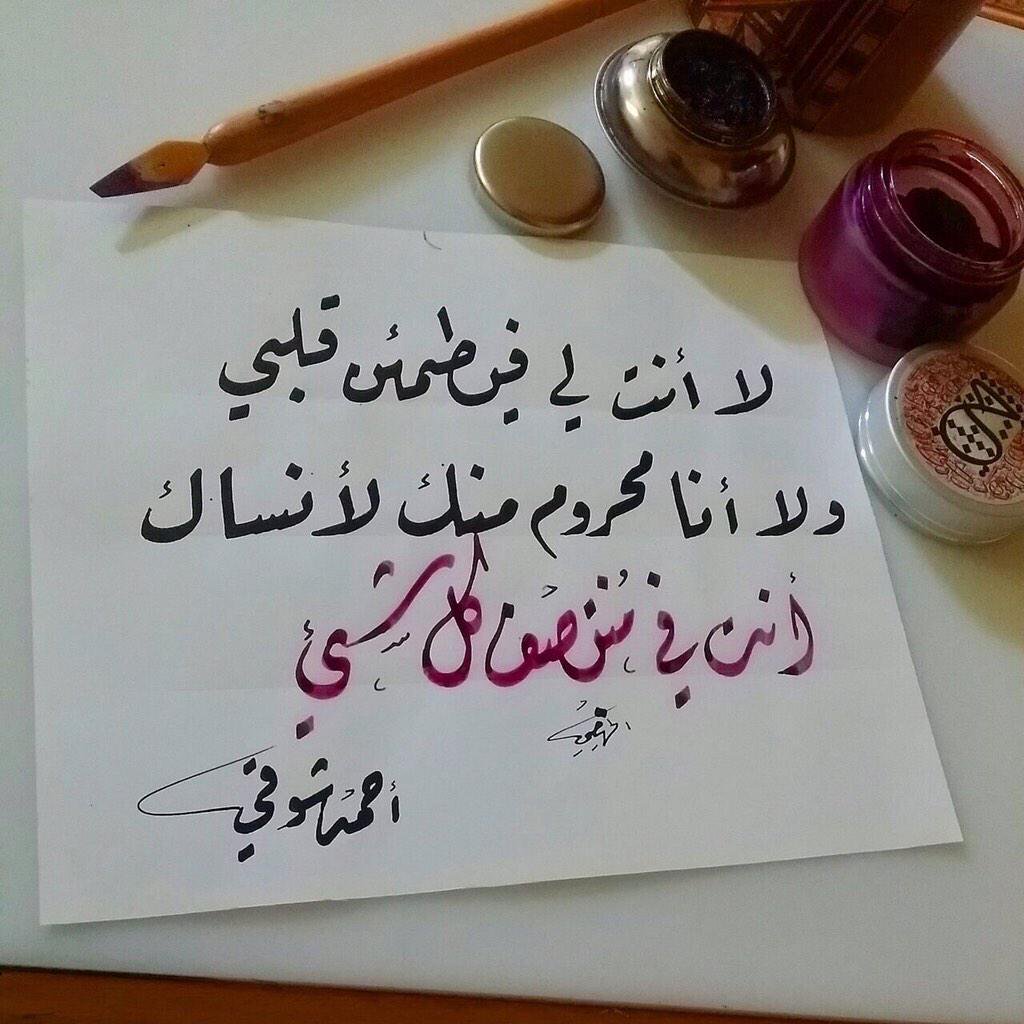 لا أنت لي فيطمئن قلبي
ولا أنا محروم منك لأنساك
أنت في مُنتصف كل شيئ
أحمد شوقي